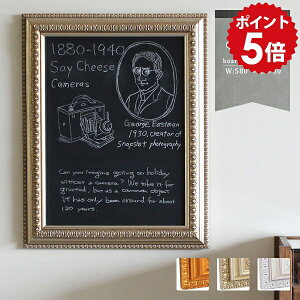 ポイント
5倍
1880-1940
Say Cheese
Cameras
George Eastman
1930, creator of
snapshot photography
Can you imagine going on holiday
without a camera? We take it for
granted, but as a common object
it has only been around for about
120 years.